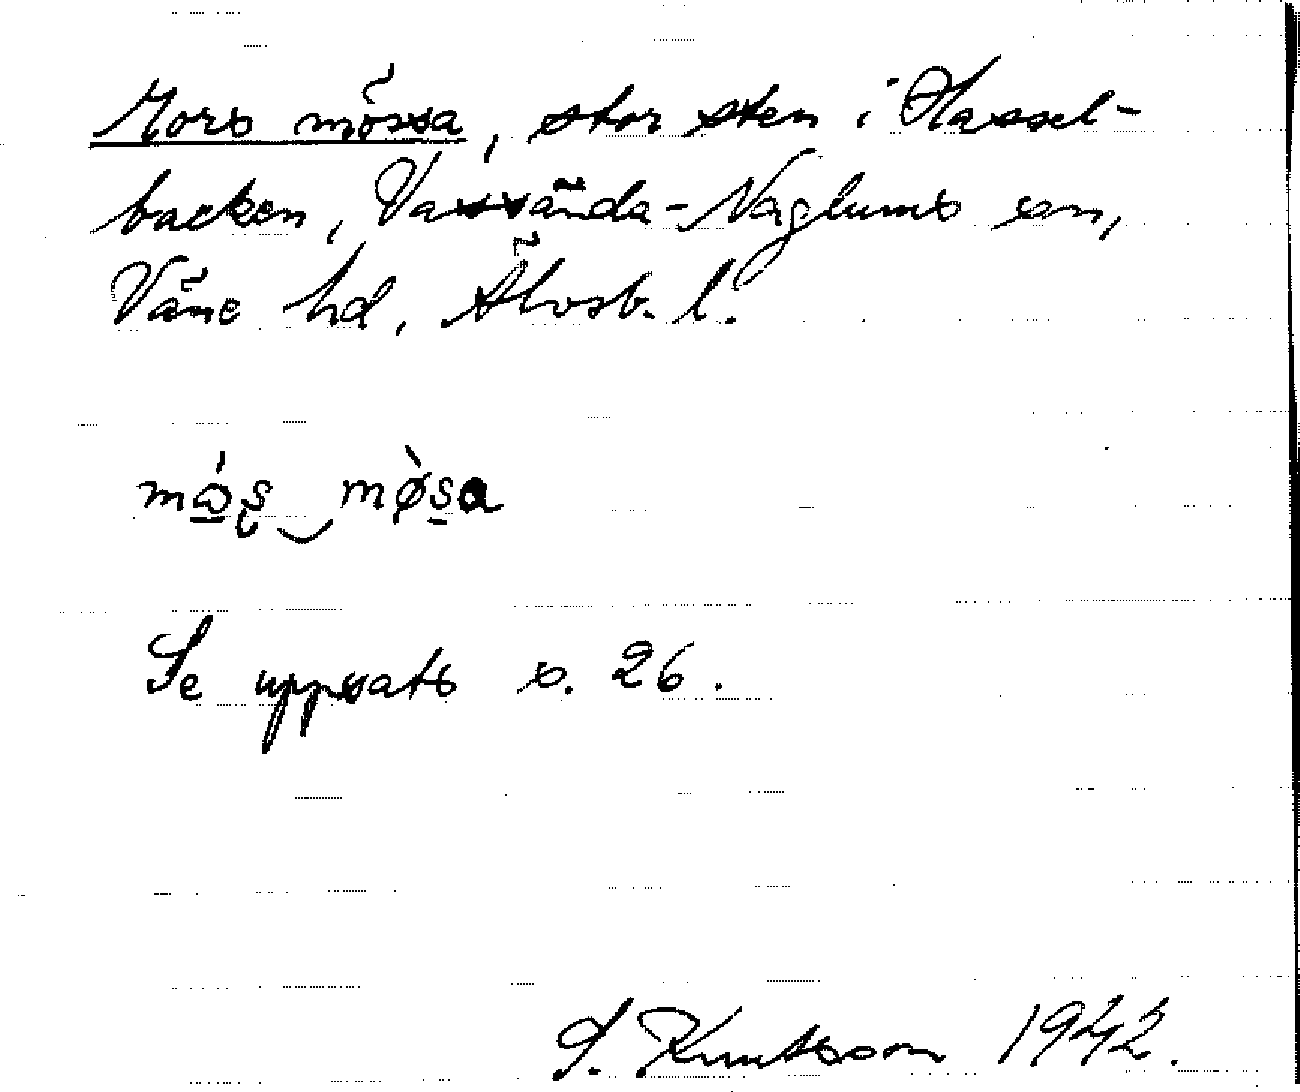 Mors mössa, stor sten i Hassel-
backen, Vassända-Naglums sn,
Väne hd, Älvsb. l.
mɷ́ʂ‿mø̀s̠a
Se uppsats s. 26.
S. Knutsson 1942.